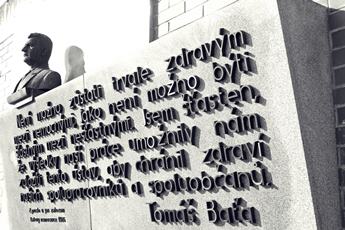 Není možno zůstati trvale zdravým
mezi nemocnými, jako není možno býti
šťastným mezi nešťastnými. Jsem šťasten,
že výsledky naší práce umožnily nám
založiti tento ústav, aby chránil zdraví
našich spolupracovníků a spoluobčanů.
Tomáš Baťa